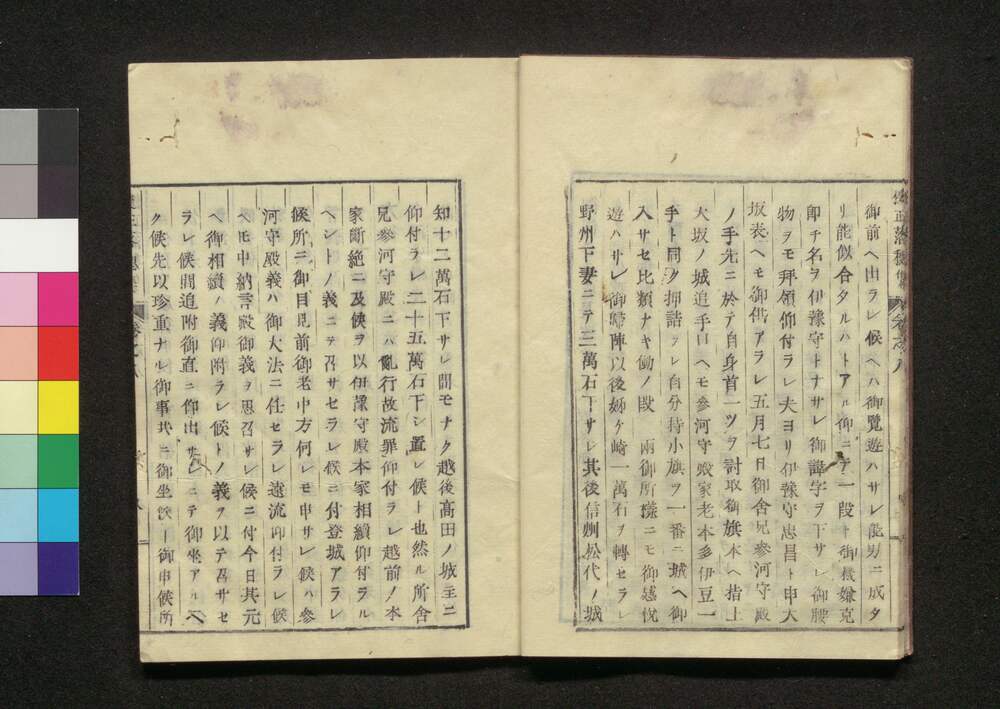 御前ヘ出ラレ候ヘハ御覧遊ハサレ能男ニ成タ
リ能似合タルハトアル御ニテ一段ト御機嫌克
卽チ名ヲ伊豫守トナサレ御諱字ヲ下サレ御腰
物ヲモ拜領仰付ラレ夫ヨリ伊豫守忠昌ト申大
坂表ヘモ御供アラレ五月七日御舍兄參河守殿
ノ手先ニ於テ自身首一ツヲ討取御旗本ヘ指上
大坂ノ城追手口ヘモ參河守殿家老本多伊豆一
手ト同ク押詰ラレ自分持小旗ヲ一番ニ城ヘ御
入サセ比類ナキ働ノ段兩御所樣ニモ御感悅
遊ハサレ御歸陣以後姉ケ崎一萬石ヲ轉セラレ
野州下妻ニテ三萬石下サレ其後信州松代ノ城
知十二萬石下サレ間モナク越後高田ノ城主ニ
仰付ラレ二十五萬石下シ置レ候ト也然ル所舍
兄參河守殿ニハ亂行故流罪仰付ラレ越前ノ本
家斷絕ニ及候ヲ以伊豫守殿本家相續仰付ラル
ヘシトノ義ニテ召サセラレ候ニ付登城アラレ
候所ニ御目見前御老中方何レモ申サレ候ハ參
河守殿義ハ御大法ニ仕セラレ遠流仰付ラレ候
ヘモ中納言殿御義ヲ思召サレ候ニ付今日其元
ヘ御相續ノ義仰附ラレ候トノ義ヲ以テ召サセ
ラレ候間追附御直ニ仰出サレニテ御坐アルヘ
ク候先以珍重ナル御事共ニ御坐候ト御申候所